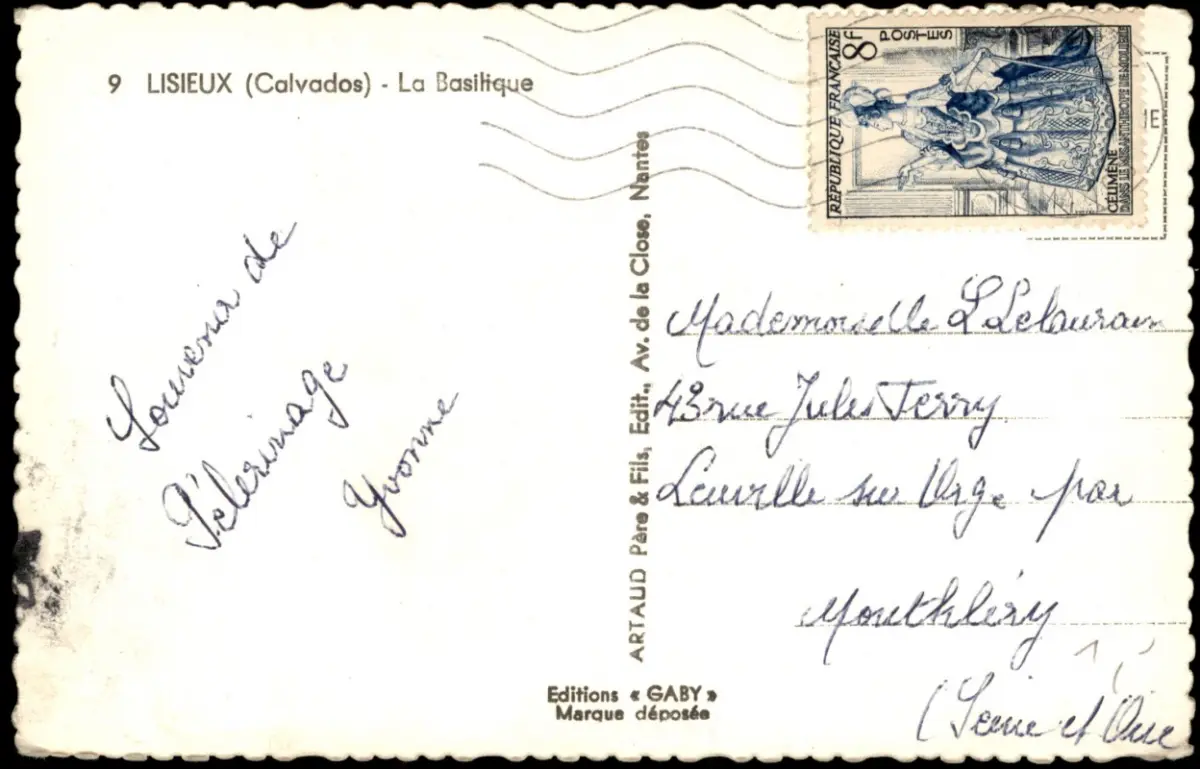 9 LISIEUX (Calvados) - La Basilique
RÉPUBLIQUE FRANÇAISE
8f
POSTES
CÉLIMÈNE
DANS LE MISANTHROPE DE MOLIÈRE
Souvenir de
Pélerinage
Yvonne
ARTAUD Père & Fils, Edit., Av. de la Close, Nantes
Mademoiselle L Lelaurain
43 rue Jules Ferry
Leuville sur Orge par
Monthléry
(Seine et Oise
Editions « GABY »
Marque déposée